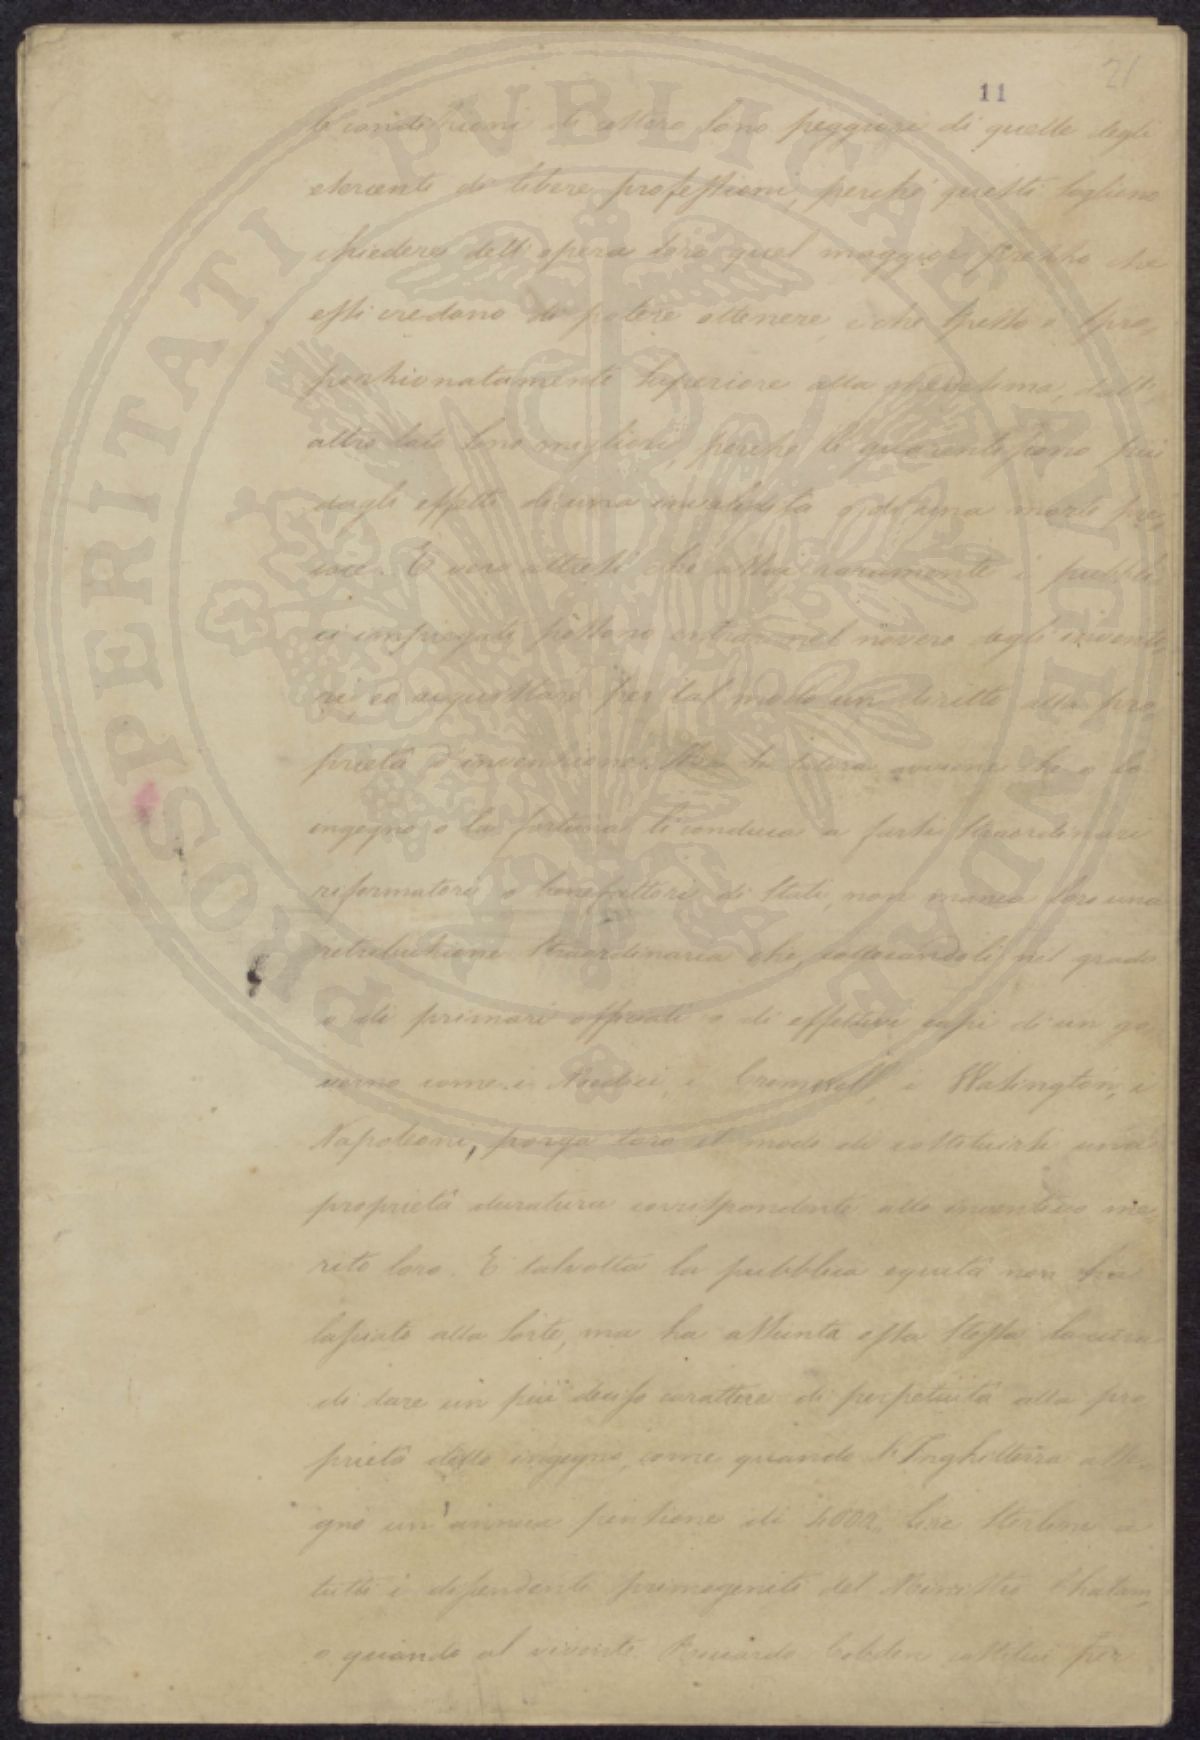 11
21
Le condizioni di costoro sono peggiori di quelle degli
esercenti di libere professioni, perché questi sogliono
chiedere dell'opera loro quel maggior prezzo che
essi credono di potere ottenere, e che spesso è spro,
porzionatamente superiore alla medesima, dall'
altro lato sono migliori, perché li guarentiscono più
dagli effetti di una o di una morte pre,
coce. È vero altresì che assai raramente i pubbli
ci impiegati possono entrar nel novero degli invento,
ri, ed acquistare per tal modo un diritto alla pro,
prietà d'invenzione. Ma se talora avviene che o lo
ingegno o la fortuna li conduca a farsi straordinari
riformatori o benefattori di Stati, non manca loro una
retribuzione straordinaria che, collocandoli nel grado
o di primari officiali o di effettivi capi di un go,
verno come i Medici, i Cromwell, i Washington, i
Napoleoni, porga loro il modo di costituirsi una
proprietà duratura corrispondente allo inventivo me,
rito loro. E talvolta la pubblica equità non
lasciato alla sorte, ma ha assunta essa stessa la cura
di dare un più deciso carattere di perpetuità alla pro
prietà dello ingegno, come quando l'Inghilterra asse,
gnò un'annua pensione di 4000 lire sterline a
tutti i discendenti primogeniti del Ministro Chatam,
o quando al vivente Riccardo Cobden costituì per
PROSPERITATI PVBLICAE AVGENDAE